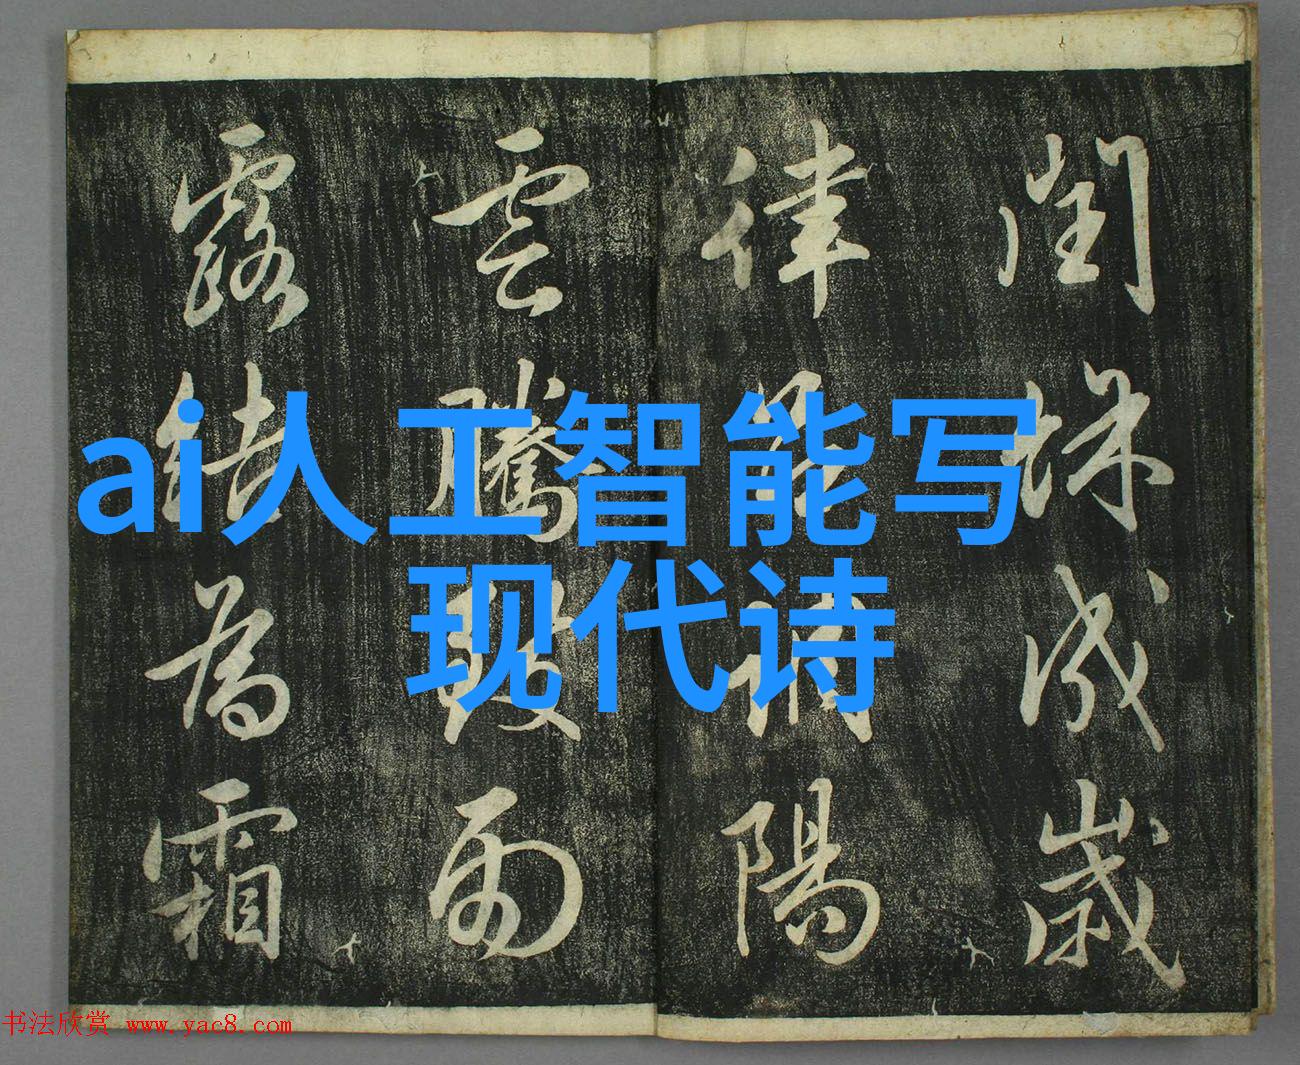 閏餘成歲
律調陽
雲騰致雨
露結為霜
ai人工智能写
现代诗
书法欣赏 www.yac8.com